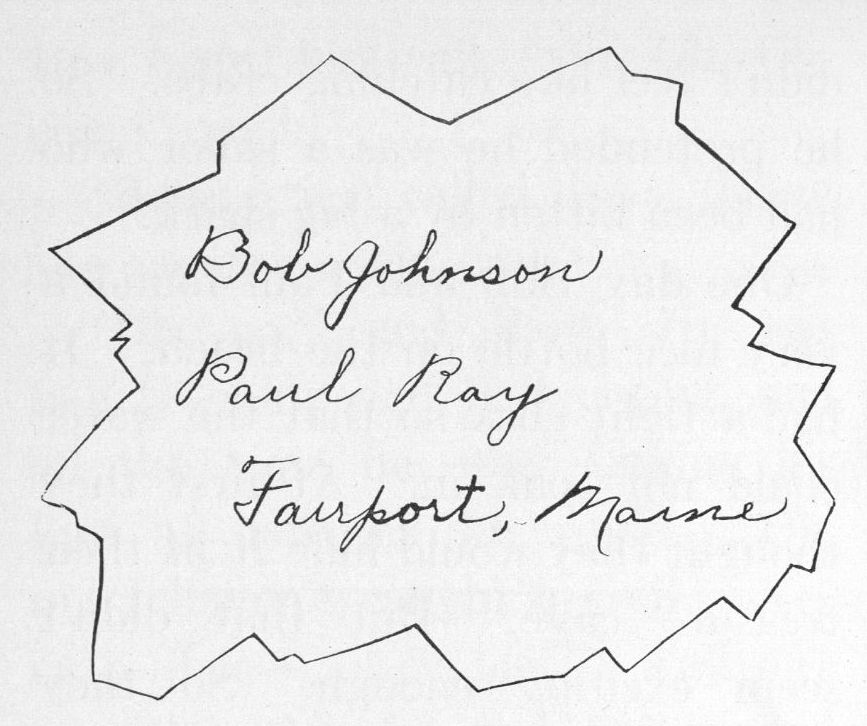 Bob Johnson
Paul Ray
Fairport, Maine